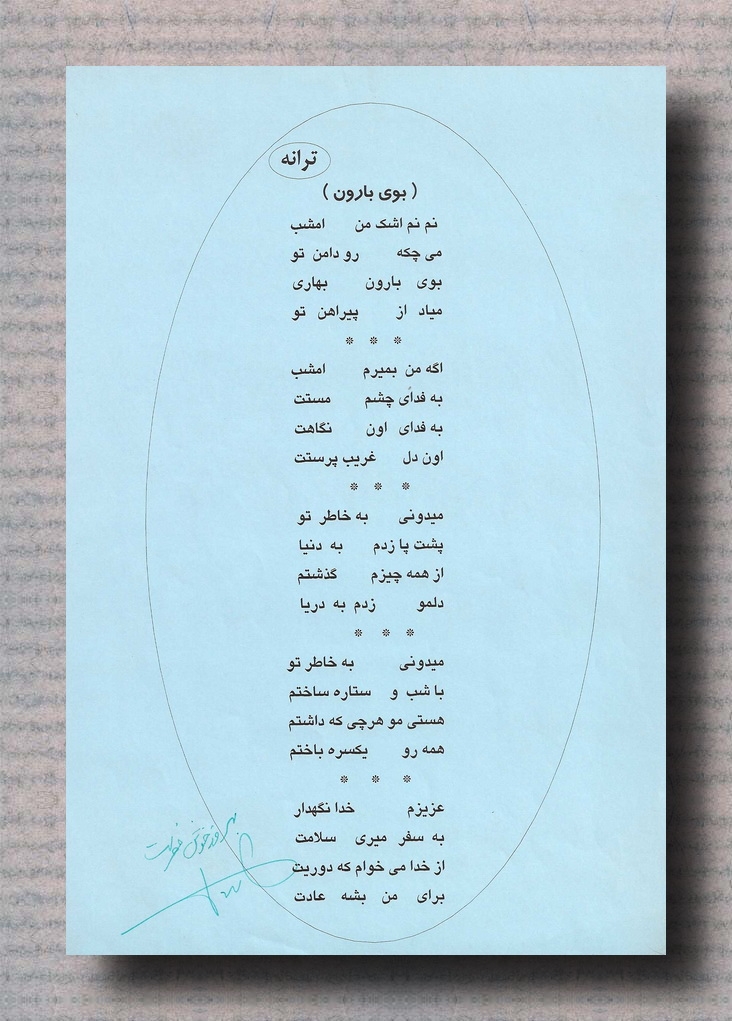 ترانه
( بوی بارون )
نم نم اشک من امشب
می چکه رو دامن تو
بوی بارون بهاری
میاد از پیراهن تو
❊ ❊ ❊
اگه من بمیرم امشب
به فدای چشم مستت
به فدای اون نگاهت
اون دل غریب پرستت
❊ ❊ ❊
میدونی به خاطر تو
پشت پا زدم به دنیا
از همه چیزم گذشتم
دلمو زدم به دریا
❊ ❊ ❊
میدونی به خاطر تو
با شب و ستاره ساختم
هستی مو هرچی که داشتم
همه رو یکسره باختم
❊ ❊ ❊
عزیزم خدا نگهدار
به سفر میری سلامت
از خدا می خوام که دوریت
برای من بشه عادت
بهروز خوش فطرت